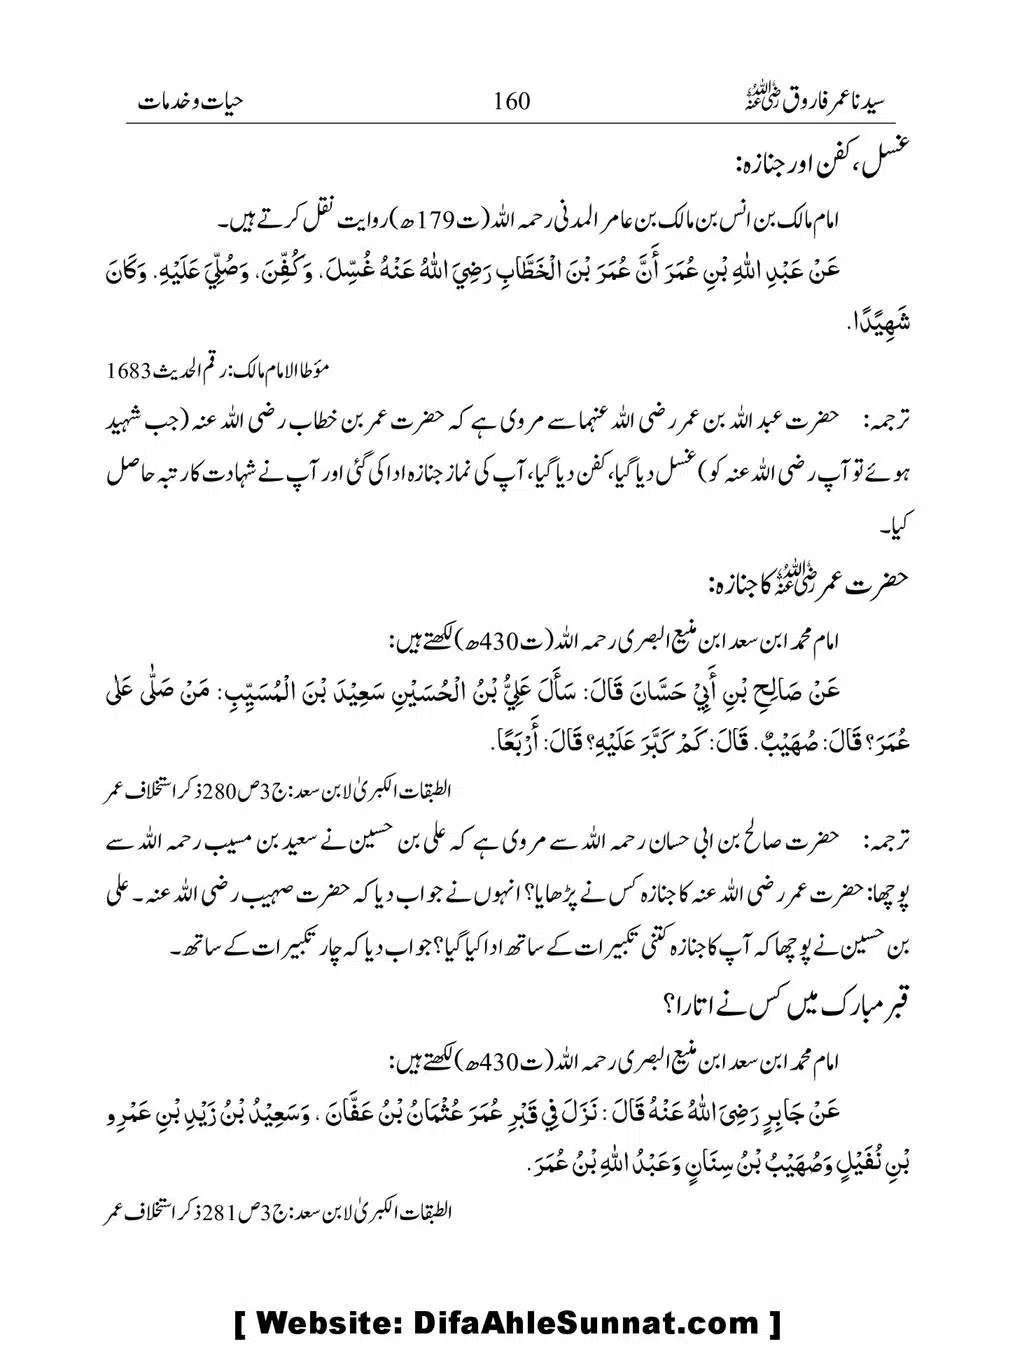 سیدنا عمر فاروق رضی اللہ عنہ 160 حیات و خدمات
غسل، کفن اور جنازہ:
امام مالک بن انس بن مالک بن عامر المدنی رحمہ اللہ (ت179ھ) روایت نقل کرتے ہیں۔
عَنْ عَبْدِ اللهِ بْنِ عُمَرَ أَنَّ عُمَرَ بْنَ الْخَطَّابِ رَضِيَ اللهُ عَنْهُ غُسِّلَ، وَكُفِّنَ، وَصُلِّيَ عَلَيْهِ، وَكَانَ
شَهِيْدًا.
مؤطا الامام مالک: رقم الحدیث 1683
ترجمہ: حضرت عبد اللہ بن عمر رضی اللہ عنہما سے مروی ہے کہ حضرت عمر بن خطاب رضی اللہ عنہ (جب شہید
ہوئے تو آپ رضی اللہ عنہ کو) غسل دیا گیا، کفن دیا گیا، آپ کی نماز جنازہ ادا کی گئی اور آپ نے شہادت کا رتبہ حاصل
کیا۔
حضرت عمر رضی اللہ عنہ کا جنازہ:
امام محمد ابن سعد ابن منیع البصری رحمہ اللہ (ت430ھ) لکھتے ہیں:
عَنْ صَالِحِ بْنِ أَبِيْ حَسَّانَ قَالَ: سَأَلَ عَلِيُّ بْنُ الْحُسَيْنِ سَعِيْدَ بْنَ الْمُسَيِّبِ: مَنْ صَلّٰى عَلٰى
عُمَرَ؟ قَالَ: صُهَيْبٌ. قَالَ: كَمْ كَبَّرَ عَلَيْهِ؟ قَالَ: أَرْبَعًا.
الطبقات الکبریٰ لابن سعد: ج3 ص280 ذکر استخلاف عمر
ترجمہ: حضرت صالح بن ابی حسان رحمہ اللہ سے مروی ہے کہ علی بن حسین نے سعید بن مسیب رحمہ اللہ سے
پوچھا: حضرت عمر رضی اللہ عنہ کا جنازہ کس نے پڑھایا؟ انہوں نے جواب دیا کہ حضرت صہیب رضی اللہ عنہ۔ علی
بن حسین نے پوچھا کہ آپ کا جنازہ کتنی تکبیرات کے ساتھ ادا کیا گیا؟ جواب دیا کہ چار تکبیرات کے ساتھ۔
قبر مبارک میں کس نے اتارا؟
امام محمد ابن سعد ابن منیع البصری رحمہ اللہ (ت430ھ) لکھتے ہیں:
عَنْ جَابِرٍ رَضِيَ اللهُ عَنْهُ قَالَ: نَزَلَ فِيْ قَبْرِ عُمَرَ عُثْمَانُ بْنُ عَفَّانَ، وَسَعِيْدُ بْنُ زَيْدِ بْنِ عَمْرِو
بْنِ نُفَيْلٍ وَصُهَيْبُ بْنُ سِنَانٍ وَعَبْدُ اللهِ بْنُ عُمَرَ.
الطبقات الکبریٰ لابن سعد: ج3 ص281 ذکر استخلاف عمر
[ Website: DifaAhleSunnat.com ]